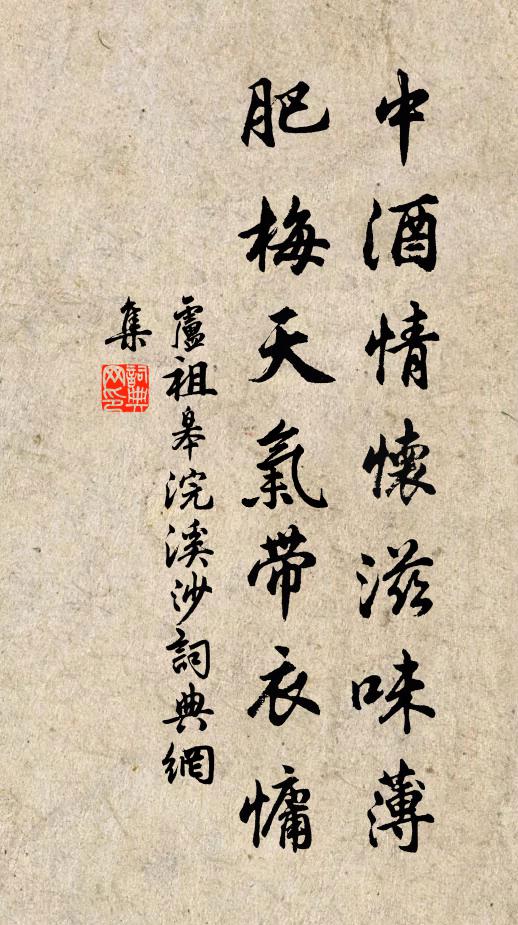 中酒情懷滋味薄
肥梅天氣帶衣慵
盧祖皋浣溪沙詞典網
集
詞典
网印